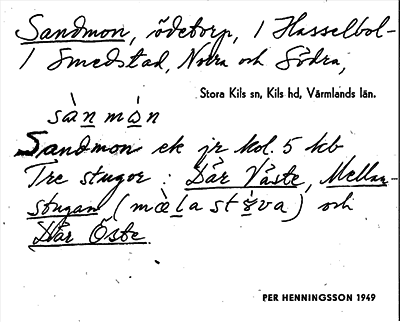 Sandmon, ödetorp, i Hasselbol-
i Smedstad, Norra och Södra,
Stora Kils sn, Kils hd, Värmlands län.
sàn mòn
Sandmon ek jr kol. 5 kb
Tre stugor: Där Väste, Mellan-
stugan (mæla stɤva) och
Där Öste.
PER HENNINGSSON 1949